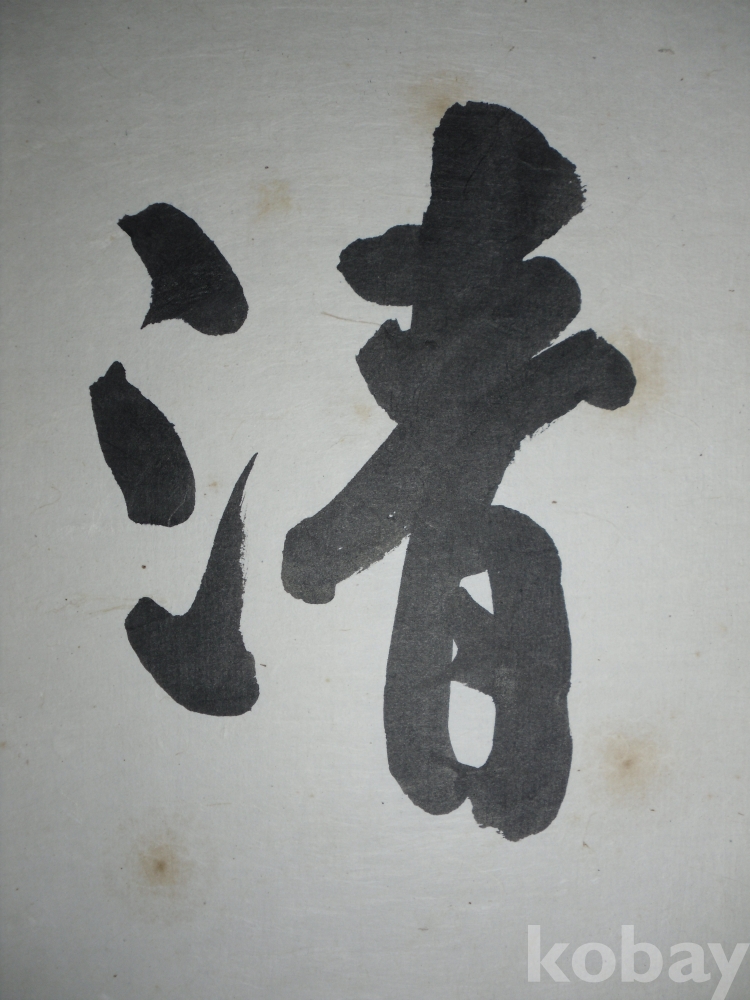 清
kobay